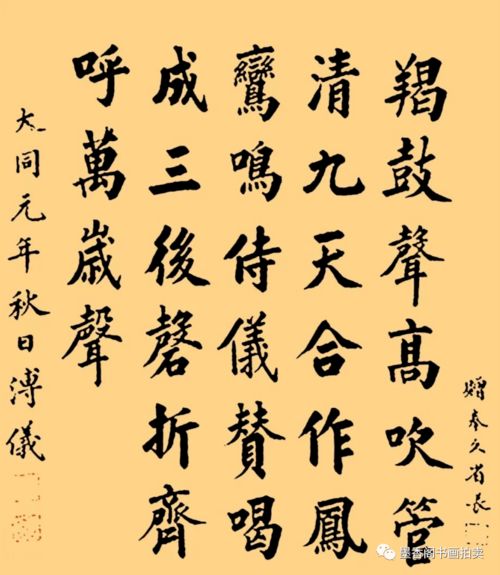 贈奉久省長
羯鼓聲高吹管
清九天合作鳳
鸞鳴侍儀贊喝
成三後磬折齊
呼萬歲聲
大同元年秋日溥儀
墨香阁书画拍卖